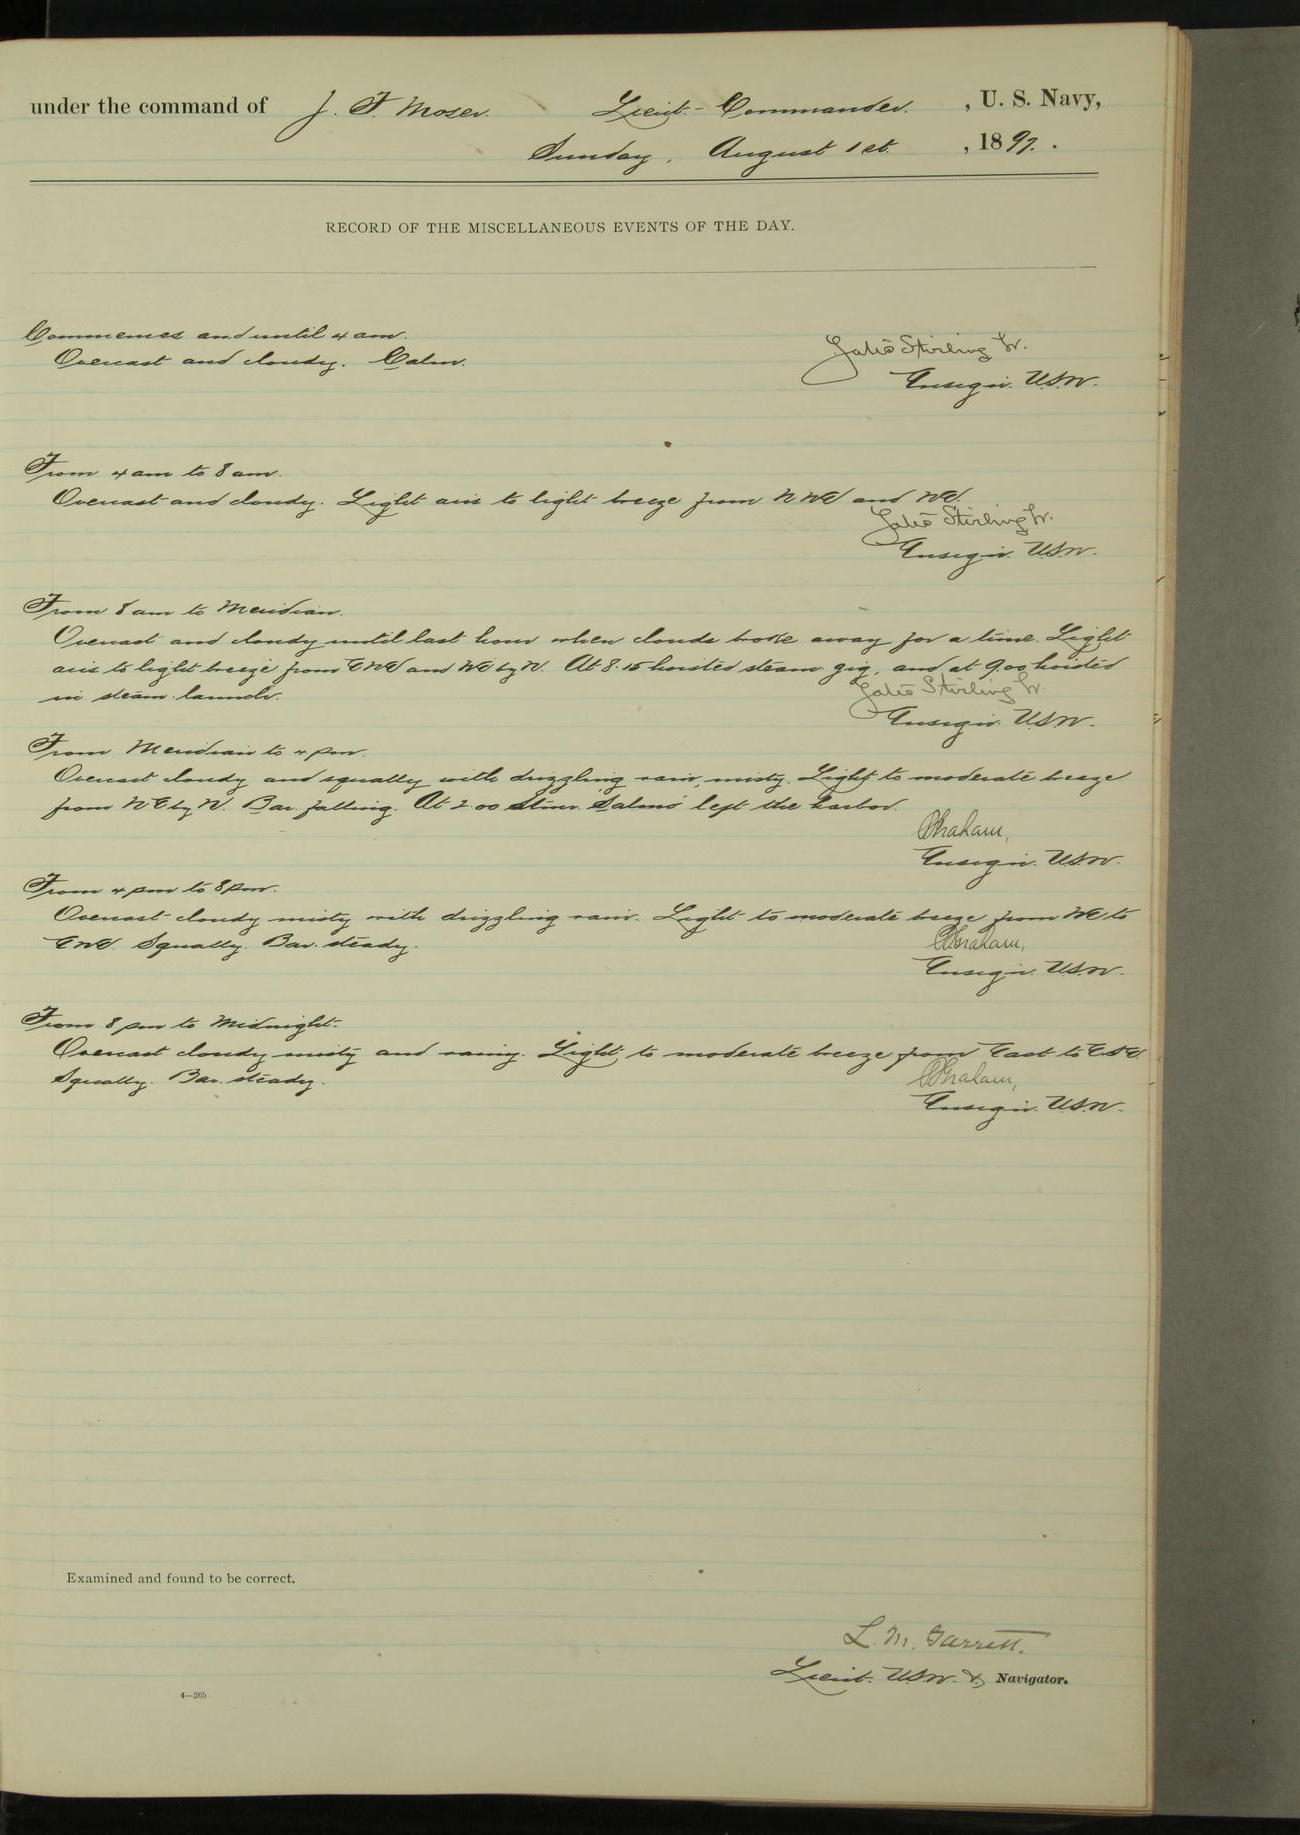 under the command of J. F. Moser. Lieut-Commander. , U. S. Navy,
Sunday, August 1st. , 1897.
RECORD OF THE MISCELLANEOUS EVENTS OF THE DAY.
Commences and until 4 am.
Overcast and cloudy. Calm.
Yates Stirling Jr.
Ensign. U.S.N.
From 4 am to 8 am.
Overcast and cloudy. Light airs to light breeze from NNE and NE.
Yates Stirling Jr.
Ensign U.S.N.
From 8 am to Meridian.
Overcast and cloudy until last hour when clouds broke away for a time. Light
airs to light breeze from ENE and NE by N. At 8.15 hoisted steam gig, and at 9.00 hoisted
in steam launch.
Yates Stirling Jr.
Ensign U.S.N.
From Meridian to 4 pm.
Overcast cloudy and squally with drizzling rain, misty. Light to moderate breeze
from NE by N. Bar. falling. At 2.00 Stmr. "Salmo" left the harbor.
Graham,
Ensign. U.S.N.
From 4 pm to 8 pm.
Overcast cloudy misty with drizzling rain. Light to moderate breeze from NE to
ENE. Squally. Bar. steady.
Graham,
Ensign. U.S.N.
From 8 pm to Midnight.
Overcast cloudy misty and rainy. Light to moderate breeze from East to ESE
Squally. Bar. steady.
Graham,
Ensign. U.S.N.
Examined and found to be correct.
L. M. Garrett.
Lieut. U.S.N. &, Navigator.
4—265